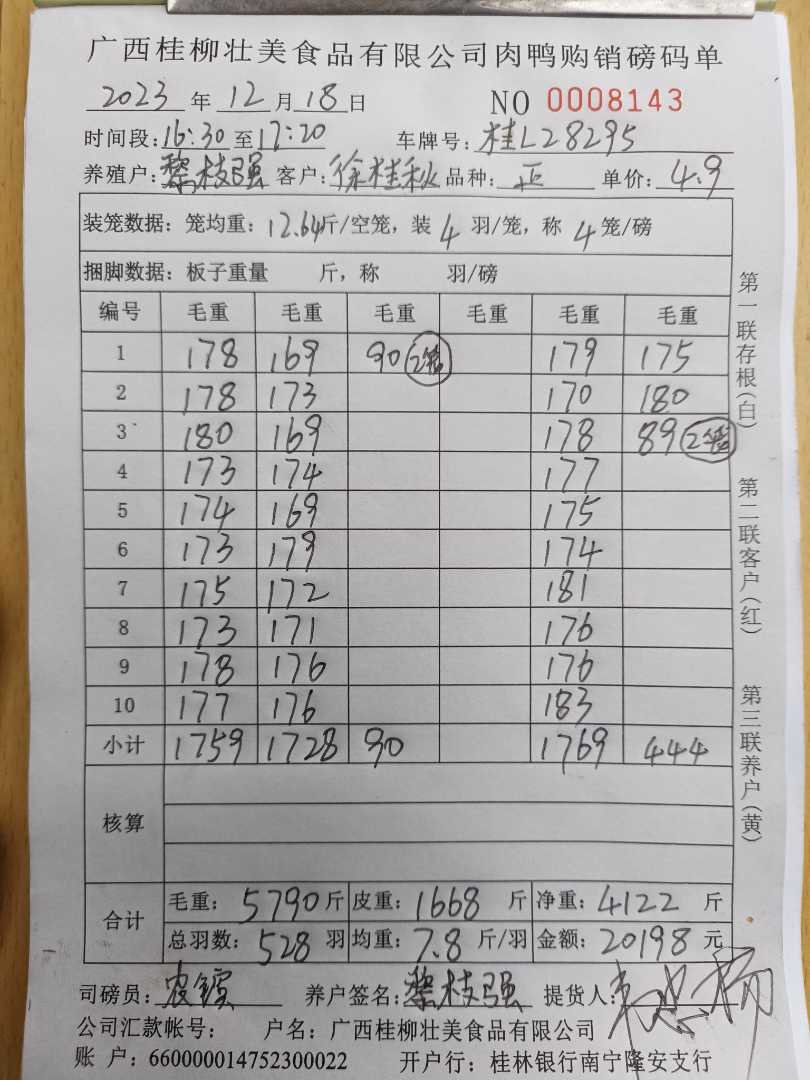 广西桂柳壮美食品有限公司肉鸭购销磅码单
2023 年 12 月 18 日 NO 0008143
时间段: 16:30 至 17:20 车牌号: 桂L28295
养殖户: 黎枝强 客户: 徐桂秋 品种: 正 单价: 4.9
装笼数据: 笼均重: 12.64 斤/空笼, 装 4 羽/笼, 称 4 笼/磅
捆脚数据: 板子重量 斤, 称 羽/磅
编号 毛重 毛重 毛重 毛重 毛重 毛重
1 178 169 90 2笼 179 175
2 178 173 170 180
3 180 169 178 89 2笼
4 173 174 177
5 174 169 175
6 173 179 174
7 175 172 181
8 173 171 176
9 178 176 176
10 177 176 183
小计 1759 1728 90 1769 444
核算
合计 毛重: 5790 斤 皮重: 1668 斤 净重: 4122 斤
总羽数: 528 羽 均重: 7.8 斤/羽 金额: 20198 元
司磅员: 养户签名: 黎枝强 提货人:
公司汇款帐号: 户名: 广西桂柳壮美食品有限公司
账 户: 660000014752300022 开户行: 桂林银行南宁隆安支行
第一联存根(白)
第二联客户(红)
第三联养户(黄)